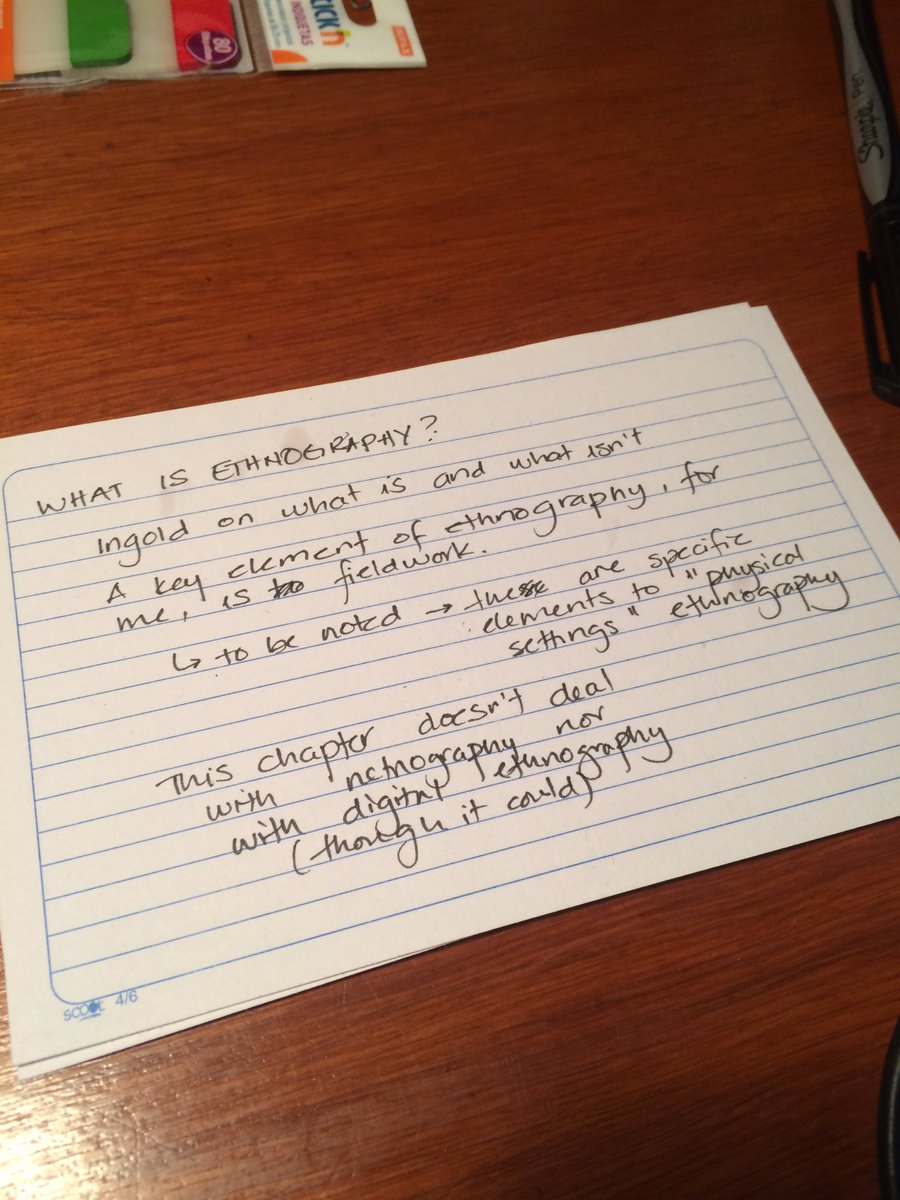 STICK'N
INDIGUETAS
80
Sharpie Pen
WHAT IS ETHNOGRAPHY?
Ingold on what is and what isn't
A key element of ethnography, for
me, is fieldwork.
↳ to be noted → these are specific
elements to "physical
settings" ethnography
This chapter doesn't deal
with netnography nor
with digital ethnography
(though it could)
SCOOL 4/6